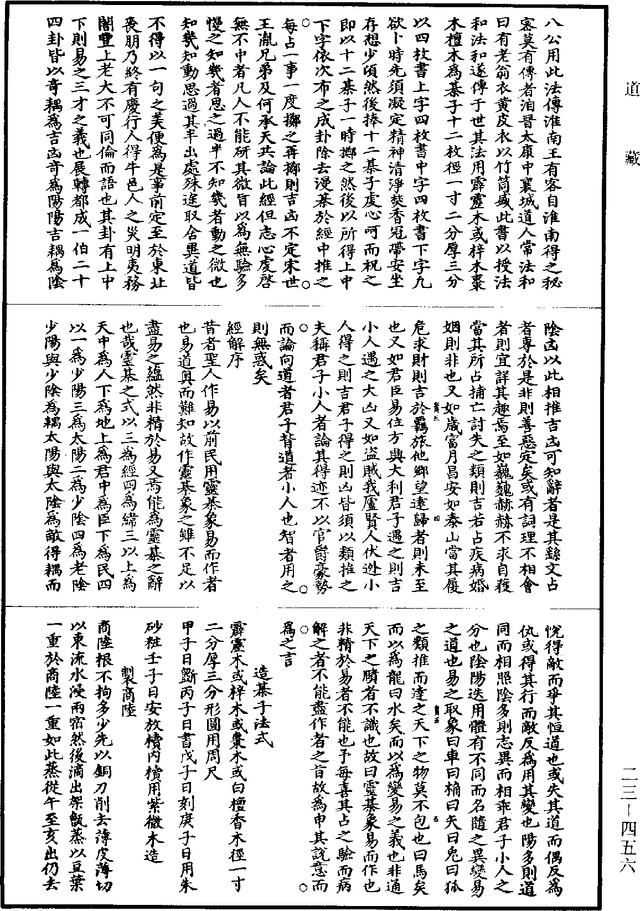 道藏
八公用此法傳淮南王有客自淮南得之秘
客莫有傳者洎晉太康中襄城道人常法和
曰有老翁衣黃皮衣以竹筒盛此書以授法
和法和遂傳于世其法用霹靂木或梓木棗
木檀木為棊子十二枚徑一寸二分厚三分
以四枚書上字四枚書中字四枚書下字凡
欲卜時先須凝定精神清淨焚香冠帶安坐
存想少頃然後捧十二棊子虔心呵而祝之
即以十二棊子一時擲之然後以所得上中
下字依次布之成卦除去漫棊於經中推之
每占一事一度擲之再擲則吉凶不定宋世
王胤兄弟及何承天共論此經但志心虔啓
無不中者凡人不能研其微旨以為無驗多
慢之如幾者思之過半不知幾者動之微也
知幾知動思過其半出處殊途取舍異道皆
不得以一句之美便為是事前定至於東北
喪朋乃終有慶行人得牛邑人之災明夷務
闇豐上老大不可同倫而語也其卦有上中
下則易之三才之義也展轉都成一伯二十
四卦皆以奇耦為吉凶奇為陽陽吉耦為陰
陰凶以此相推吉凶可知辭者是其錄文占
者專於是非則善惡定矣或有詞理不相會
者則宜詳其趣焉至如巍巍赫赫不求自獲
當其所占捕亡討失之類則吉若占疾病婚
姻則非也又如歲富月昌安如泰山當其履
危求財則吉於羈旅他鄉望遠歸者則未至
也又如君臣易位方興大利君子遇之則吉
小人遇之大凶又如盜賊我廬賢人伏逃小
人得之則吉君子得之則凶皆須以類推之
夫稱君子小人者論其得迹不以官爵豪勢
而論向道者君子背道者小人也智者用之
則無惑矣
經解序
昔者聖人作易以前民用靈棊象易而作者
也易道奧而難知故作靈棊象之雖不足以
盡易之蘊然非精於易又焉能為靈棊之辭
也哉靈棊之式以三為經四為緯三以上為
天中為人下為地上為君中為臣下為民四
以一為少陽三為太陽二為少陰四為老陰
少陽與少陰為耦太陽與太陰為敵得耦而
悅得敵而爭其恒道也或失其道而偶反為
仇或得其行而敵反為用其變也陽多則道
同而相照陰多則志異而相乖君子小人之
分也陰陽迭用體有不同而名隨之異變易
之道也易之取象曰車曰桶曰矢曰鬼曰狐
之類推而達之天下之物莫不包也曰馬矣
而以為龍曰水矣而以為變易之義也非通
天下之賾者不識也故曰靈棊象易而作也
非精於易者不能也予每喜其占之驗而病
解之者不能盡作者之旨故為申其說意而
為之言
造棊子法式
霹靂木或梓木或棗木或白檀香木徑一寸
二分厚三分形圓用周尺
甲子日斷丙子日書戊子日刻庚子日用朱
砂粧壬子日安放櫝內櫝用紫檀木造
製商陸
商陸根不拘多少先以銅刀削去薄皮薄切
以東流水浸兩宿然後滴出架甑蒸以豆葉
一重於商陸一重如此蒸從午至亥出仍去
二三－四五六